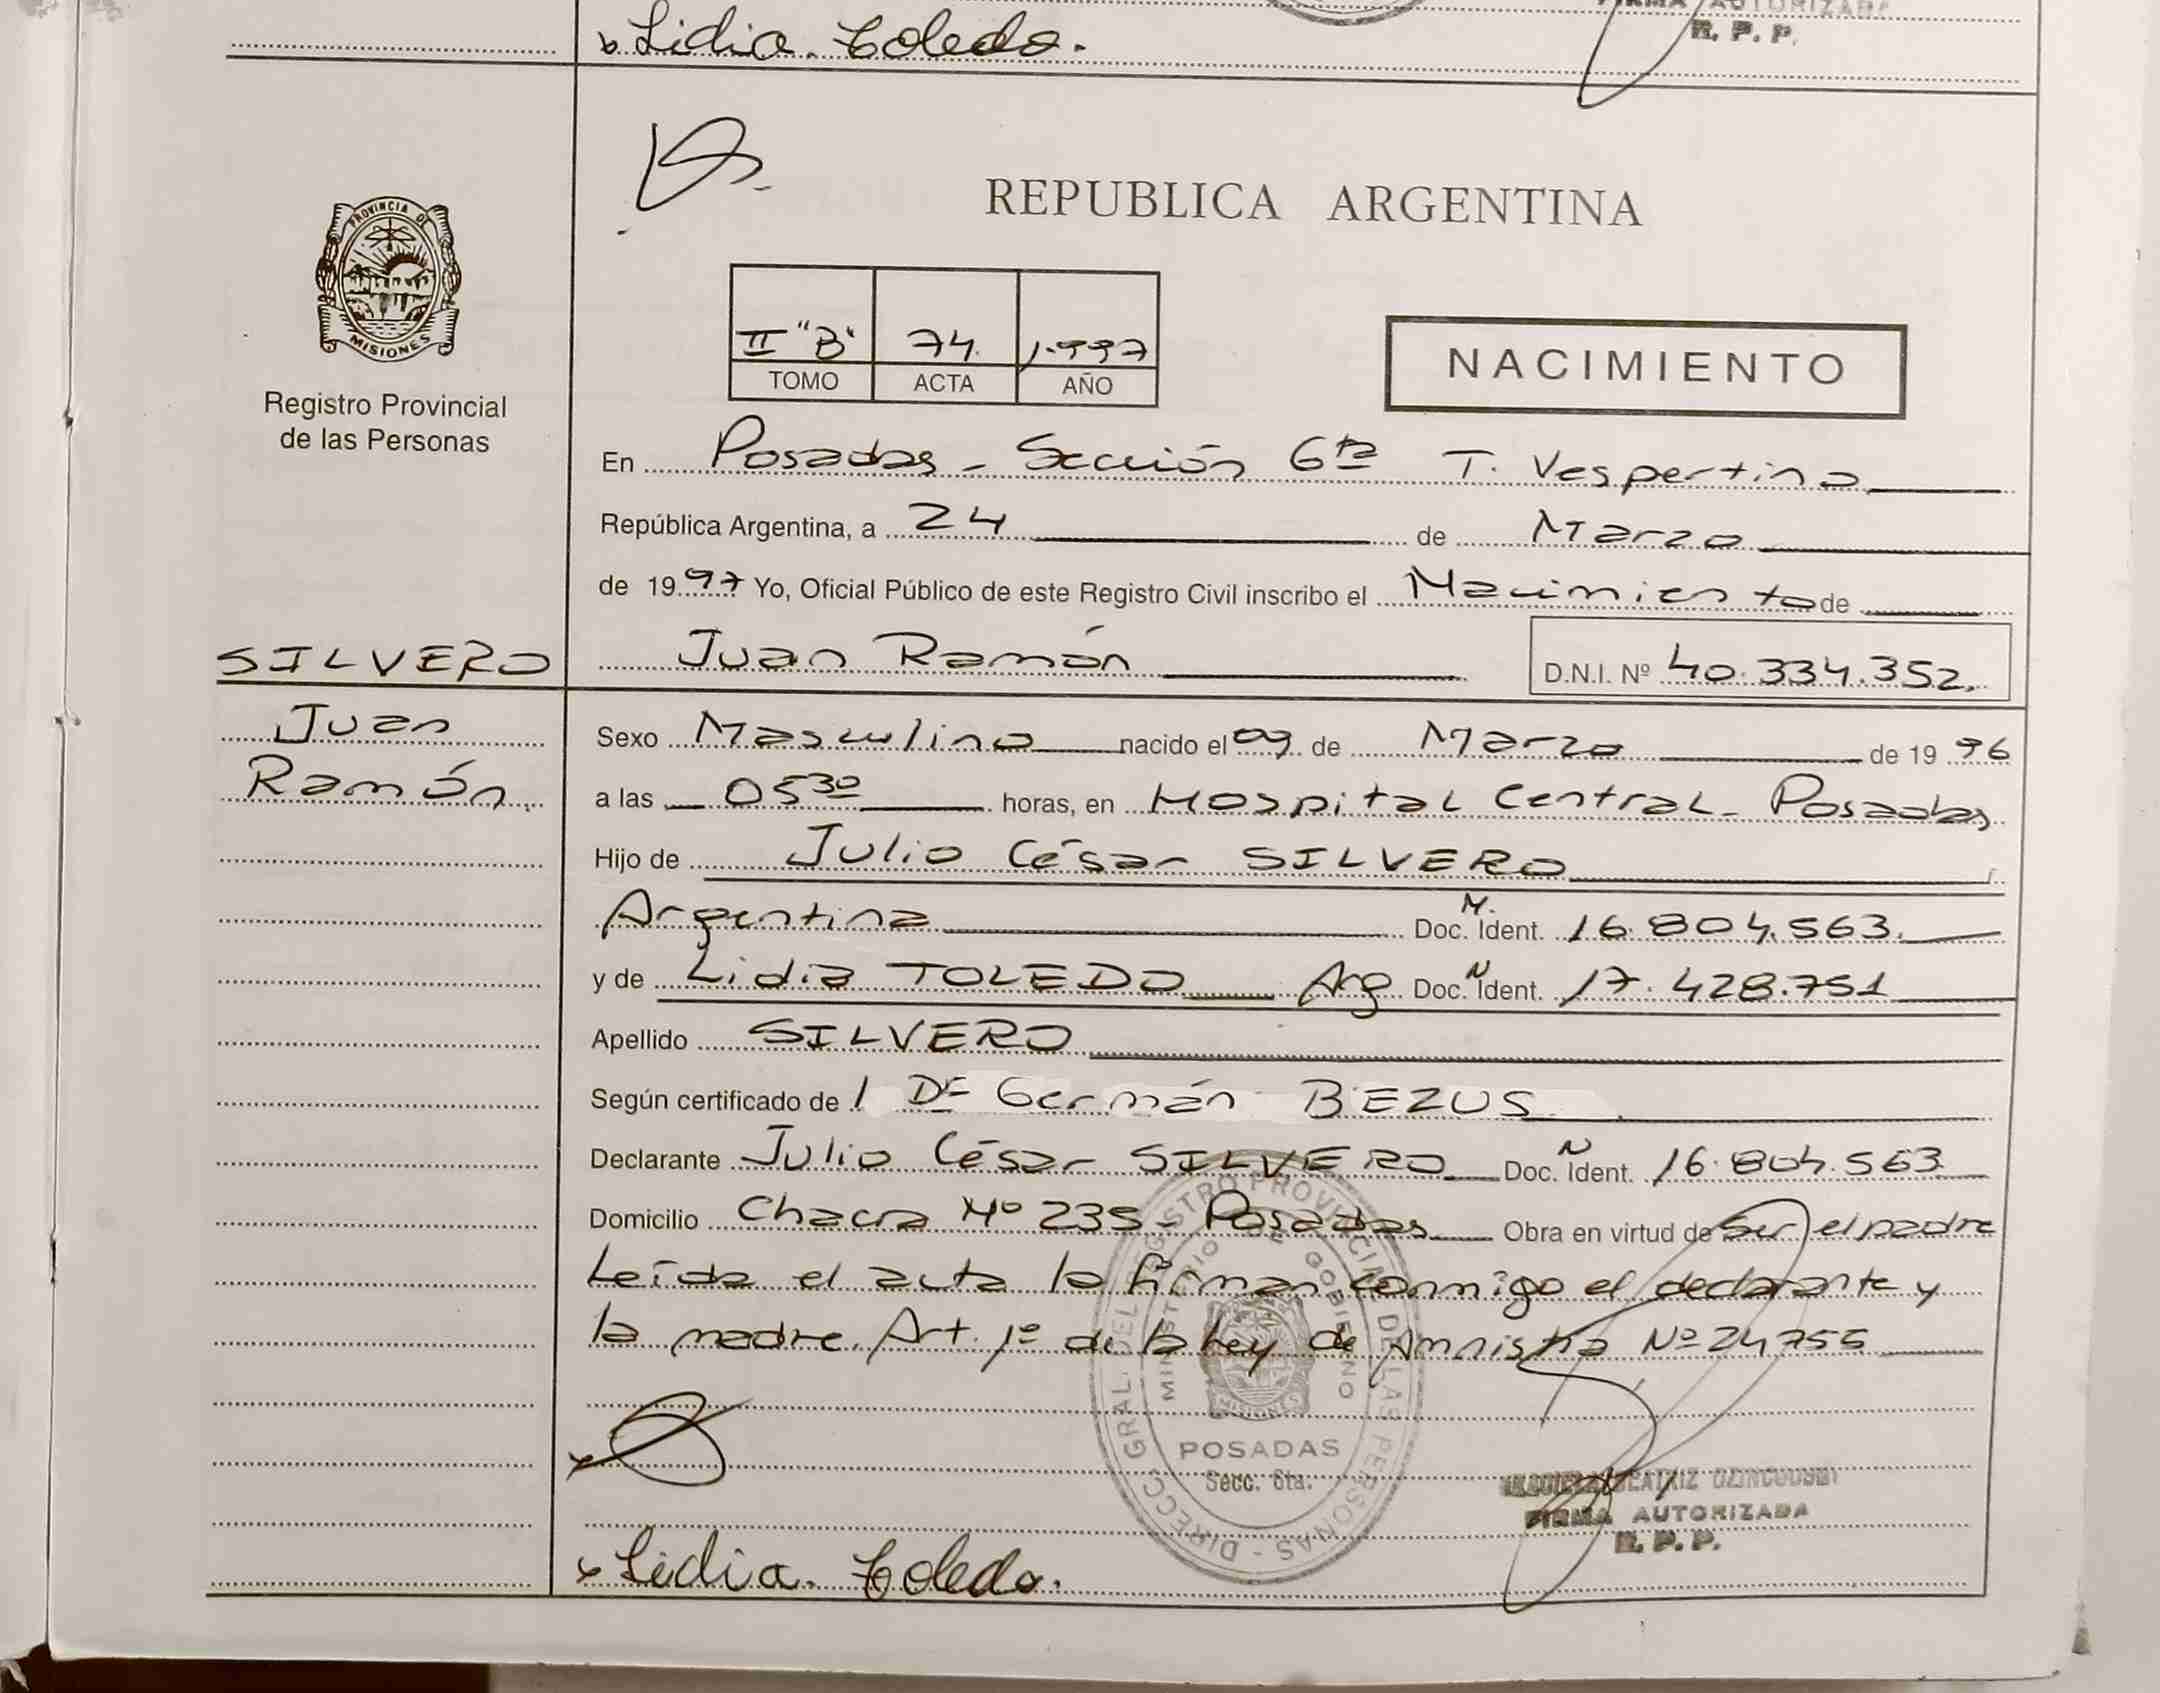 Lidia. Toledo.
FIRMA AUTORIZADA
R. P. P.
PROVINCIA DE
MISIONES
Registro Provincial
de las Personas
REPUBLICA ARGENTINA
II "B" 74. 1.997
TOMO ACTA AÑO
NACIMIENTO
En Posadas - Sección 6ta T. Vespertina
República Argentina, a 24 de Marzo
de 1997 Yo, Oficial Público de este Registro Civil inscribo el Nacimiento de
SILVERO Juan Ramón D.N.I. Nº 40.334.352.
Juan
Ramón.
Sexo Masculino nacido el 09 de Marzo de 1996
a las 0530 horas, en Hospital Central - Posadas
Hijo de Julio César SILVERO
Argentina M. Doc. Ident. 16.804.563.
y de Lidia TOLEDO Arg Doc. N Ident. 17.428.751
Apellido SILVERO
Según certificado de 1 Dr Germán BEZUS
Declarante Julio César SILVERO Doc. N Ident. 16.804.563
Domicilio Chacra Nº 235 - Posadas Obra en virtud de Ser el padre
Leída el acta la firman conmigo el declarante y
la madre. Art. 1º de la Ley de Amnistía Nº 24755
DIRECC. GRAL. DEL REGISTRO PROVINCIAL DE LAS PERSONAS
MINISTERIO DE GOBIERNO
MISIONES
POSADAS
Secc. 6ta.
BEATRIZ
FIRMA AUTORIZADA
R. P. P.
Lidia. Toledo.